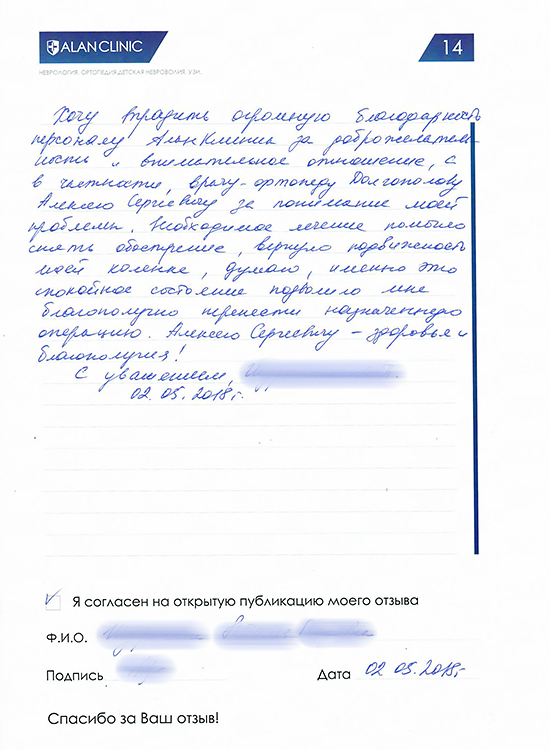 ALAN CLINIC
14
НЕВРОЛОГИЯ. ОРТОПЕДИЯ. ДЕТСКАЯ НЕВРОЛОГИЯ. УЗИ.
Хочу выразить огромную благодарность
персоналу Алан Клиник за доброжелатель
ность и внимательное отношение, а
в частности, врачу-ортопеду Долгополову
Алексею Сергиевичу за понимание моей
проблемы. Необходимое лечение помогло
снять обострение, вернуло подвижность
моей коленке, думаю, именно это
спокойное состояние позволило мне
благополучно перенести назначенную
операцию. Алексею Сергиевичу – здоровья и
благополучия!
С уважением,
02.05.2018г.
Я согласен на открытую публикацию моего отзыва
Ф.И.О.
Подпись
Дата 02 05. 2018г.
Спасибо за Ваш отзыв!